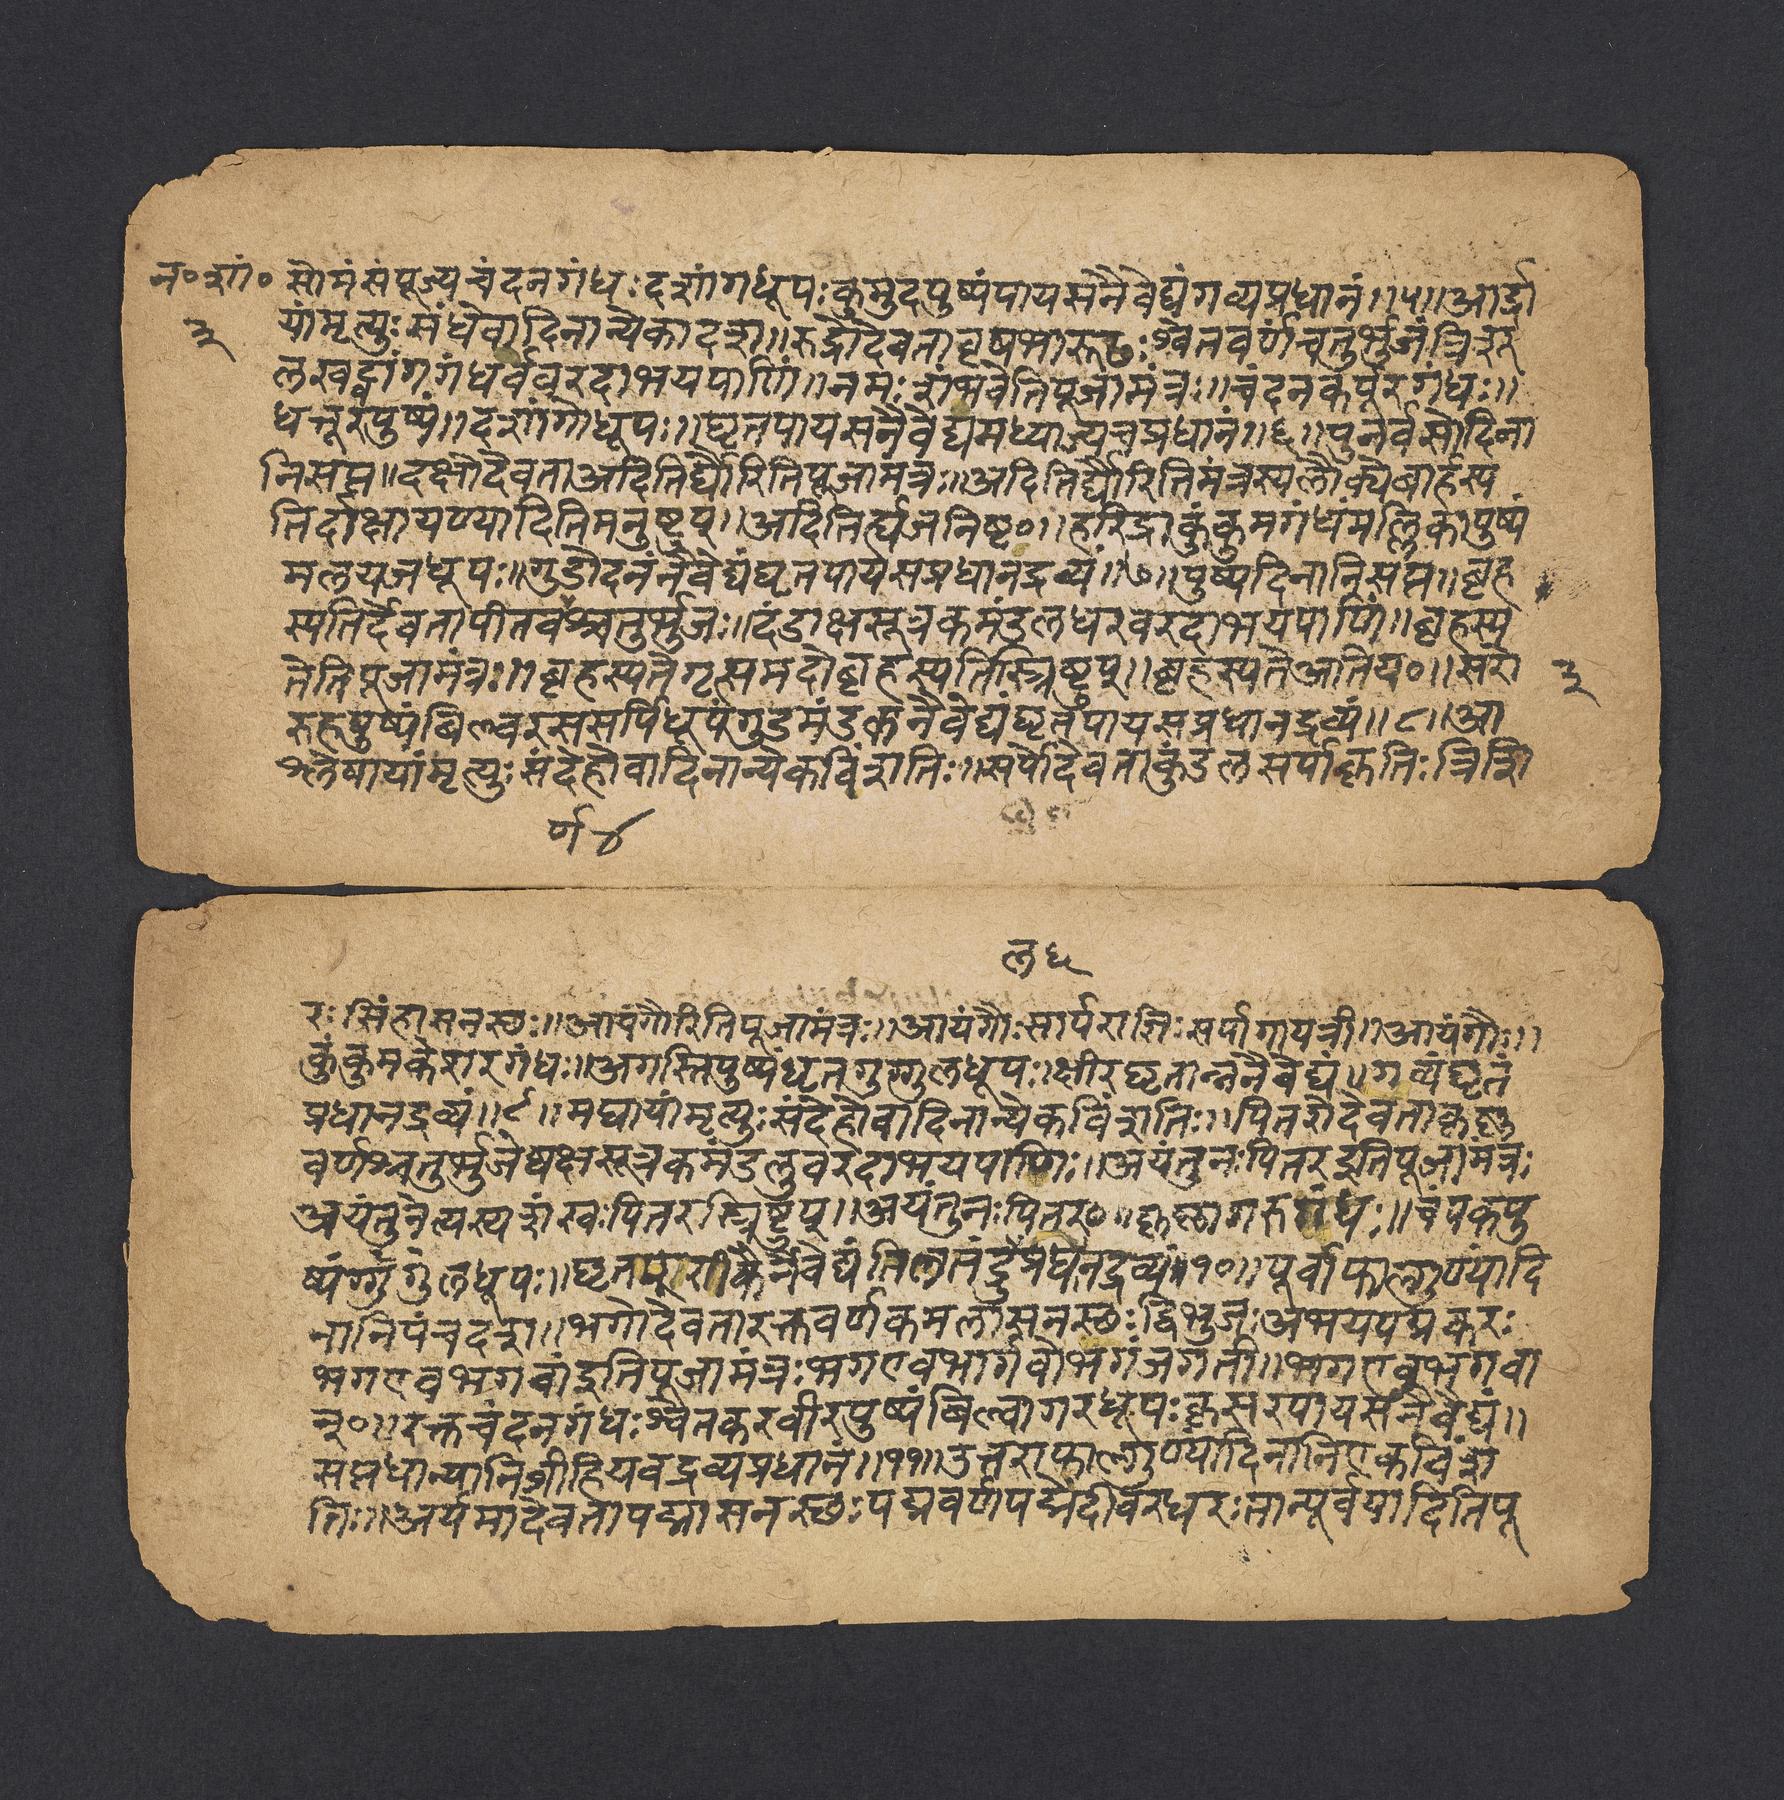 न॰शां॰ सोमंसंपूज्यचंदनगंधः दशांगधूपःकुमुदपुष्पंपायसंनैवेद्यंगव्यप्रधानं॥५॥आर्द्रा
३ यांमृत्युःसंधेवादिनान्येकादश॥रुद्रोदेवतावृषभारूढः श्वेतवर्णचतुर्भुजंत्रिशू
लखट्वांगगंधर्वेवरदाभयपाणिं॥नमःशंभवेतिपूजामंत्रः॥चंदनकर्पूरगंधः॥
धत्तूरपुष्पं॥दशांगोधूपः॥घृतपायसनैवेद्यमध्याज्यचप्रधानं॥६॥पुनर्वसोदिना
निसप्त॥दक्षोदेवताअदितिर्द्यौरितिपूजामंत्रः॥अदितिर्द्यौरितिमंत्रस्यलौक्येबार्हस्प
तिर्दाक्षायण्यादितिमनुष्टुप्॥अदितिर्ह्यजनिष्ट॰॥हरिद्राकुंकुमगंधंमल्लिकापुष्पं
मलयजधूपः॥गुडोदनंनैवेद्यंघृतपायसप्रधानद्रव्यं॥७॥पुष्यदिनानिसप्त॥बृह
स्पतिर्देवतापीतवर्श्चतुर्भुजः॥दंडाक्षसूत्रकमंडलधरवरदाभयपाणिं॥बृहस्प
तेतिपूजामंत्रः॥बृहस्पतेगृत्समदोबृहस्पतिस्त्रिष्टुप्॥बृहस्पतेअतिय॰॥सरो ३
रुहपुष्पंबिल्वरससर्पिधूपंगुडमंडकनैवेद्यंघृतंपायसप्रधानद्रव्यं॥८॥आ
श्लेषायांमृत्युःसंदेहोवादिनान्येकविंशतिः॥सर्पोदेवताकुंडलसर्पाकृतिः त्रिशि
र्ण ४
ल ६
रः सिंहासनस्छः॥आयंगौरितिपूजामंत्रः॥आयंगौःसार्पराज्ञिःसर्पागायत्री॥आयंगौः॥
कुंकुमकेशरगंधः॥अगस्तिपुष्पंघृतगुग्गुलधूपः।क्षीरघृतान्ननैवेद्यं॥गव्यंघृतं
प्रधानद्रव्यं॥९॥मघायांमृत्युःसंदेहोवादिनान्येकविंशतिः॥पितरोदेवताकृष्ण
वर्णश्चतुर्भुजेध्यक्षसूत्रकमंडलुवरदाभयपाणिः॥अयंतुनःपितरइतिपूजामंत्रः
अयंतुनेत्यस्यशंखःपितरस्त्रिष्टुप्॥अयंतुनःपितर॰॥कृष्णागरुगंधः॥चंपकपु
ष्पंगुग्गुलधूपः॥घृतपूरीकैनैवेद्यंतिलतंदुप्रधानद्रव्यं॥१०॥पूर्वाफाल्गुण्यांदि
नानिपंचदश॥भगोदेवतारक्तवर्णकमलासनस्छःद्विभुजःअभयपद्मकरः
भगएवभगवांइतिपूजामंत्रःभगएवभार्गवोभगंजगती॥भगएवभगवा
न्॰॥रक्तचंदनगंधःश्वेतकरवीरपुष्पंबिल्वागरधूपःकृसरपायसंनैवेद्यं॥
सप्तधान्यानिव्रीहियवद्रव्यप्रधानं॥११॥उत्तराफाल्गुण्यांदिनानिएकविंश
तिः॥अर्यमादेवतापद्मासनस्छःपद्मवर्णपद्मेंदीवरधरःतान्पूर्वयादितिपू